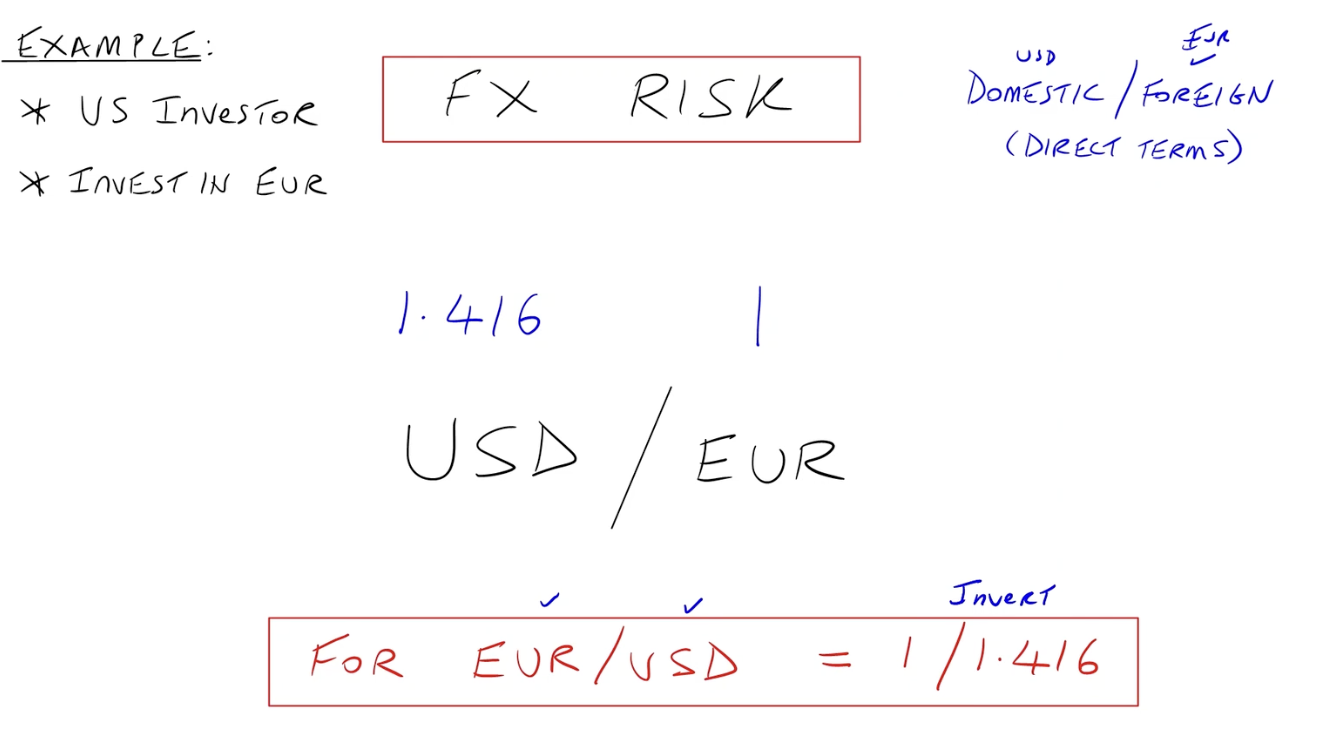 EXAMPLE:
* US INVESTOR
* INVEST IN EUR
FX RISK
USD EUR
DOMESTIC / FOREIGN
(DIRECT TERMS)
1.416 1
USD / EUR
INVERT
FOR EUR/USD = 1/1.416